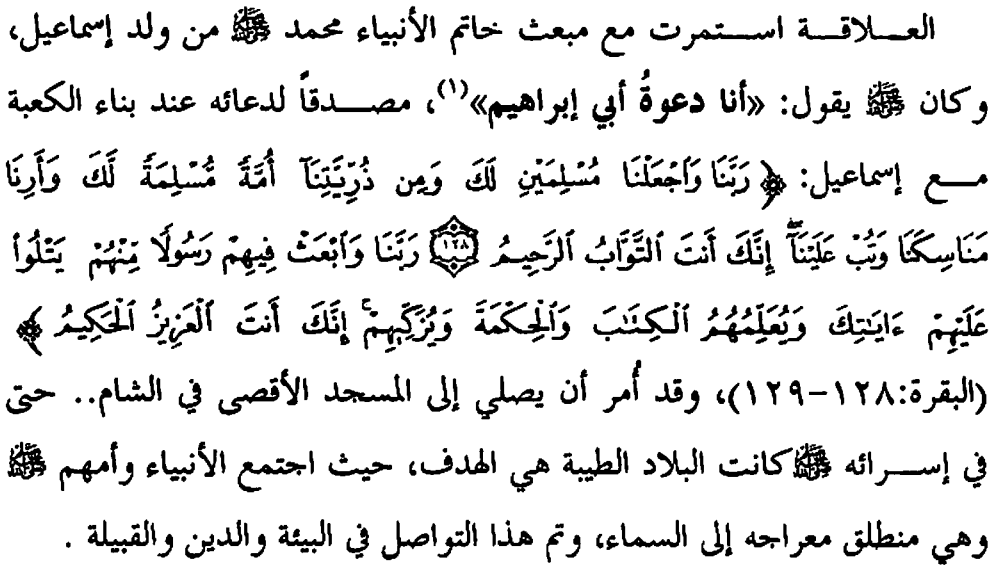 العـــلاقـــة استـــمرت مع مبعث خاتم الأنبياء محمد ﷺ من ولد إسماعيل،
وكان ﷺ يقول: «أنا دعوةُ أبي إبراهيم»(١)، مصـــدقاً لدعائه عند بناء الكعبة
مـــع إسماعيل: ﴿رَبَّنَا وَٱجْعَلْنَا مُسْلِمَيْنِ لَكَ وَمِن ذُرِّيَّتِنَآ أُمَّةً مُّسْلِمَةً لَّكَ وَأَرِنَا
مَنَاسِكَنَا وَتُبْ عَلَيْنَآ ۖ إِنَّكَ أَنتَ ٱلتَّوَّابُ ٱلرَّحِيمُ ۝١٢٨ رَبَّنَا وَٱبْعَثْ فِيهِمْ رَسُولًا مِّنْهُمْ يَتْلُوا۟
عَلَيْهِمْ ءَايَـٰتِكَ وَيُعَلِّمُهُمُ ٱلْكِتَـٰبَ وَٱلْحِكْمَةَ وَيُزَكِّيهِمْ ۚ إِنَّكَ أَنتَ ٱلْعَزِيزُ ٱلْحَكِيمُ﴾
(البقرة:١٢٨-١٢٩)، وقد أُمر أن يصلي إلى المسجد الأقصى في الشام.. حتى
في إســـرائه ﷺ كانت البلاد الطيبة هي الهدف، حيث اجتمع الأنبياء وأمهم ﷺ
وهي منطلق معراجه إلى السماء، وتم هذا التواصل في البيئة والدين والقبيلة .